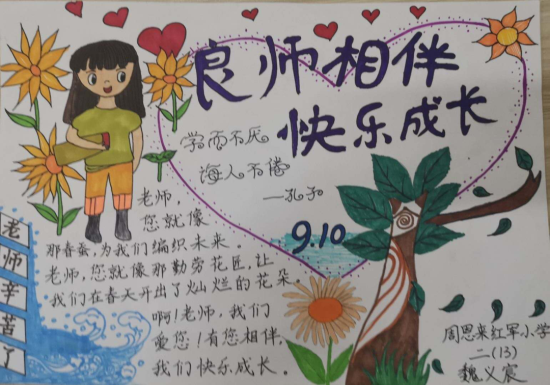 良师相伴
快乐成长
学而不厌
海人不倦
—孔子
9.10
老师,
您就像
那春蚕,为我们编织未来。
老师,您就像那勤劳花匠,让
我们在春天开出了灿烂的花朵
啊!老师,我们
爱您!有您相伴,
我们快乐成长。
老师辛苦了
周恩来红军小学
二(13)
魏义宸